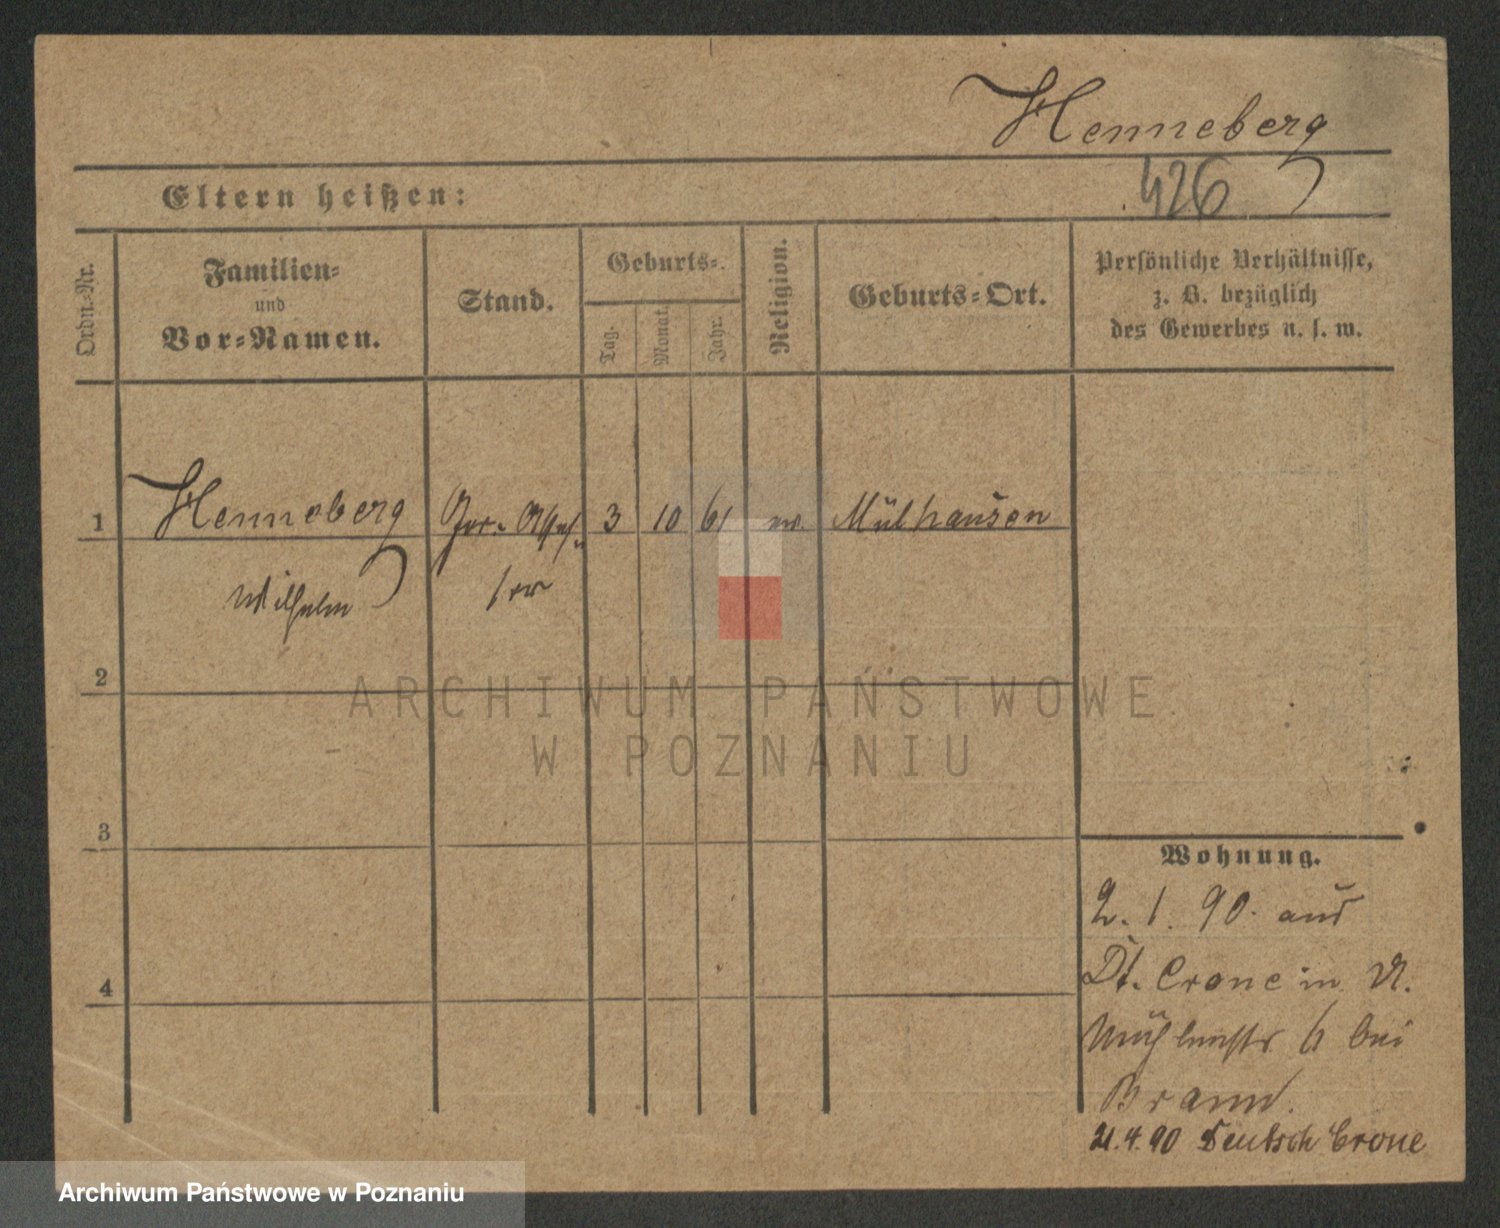 Henneberg
426
Eltern heißen:
Ordn.=Nr.
Familien=
und
Vor=Namen.
Stand.
Geburts=
Tag.
Monat.
Jahr.
Religion.
Geburts=Ort.
Persönliche Verhältnisse,
z. B. bezüglich
des Gewerbes u. s. w.
1 Henneberg 3 10 61 ev. Mülhausen
Wilhelm
2
ARCHIWUM PAŃSTWOWE
W POZNANIU
3
Wohnung.
2. 1. 90. aus
Dt. Crone in
Mühlenstr 6 bei
Brann.
4
21.4.90 Deutsch Crone
Archiwum Państwowe w Poznaniu